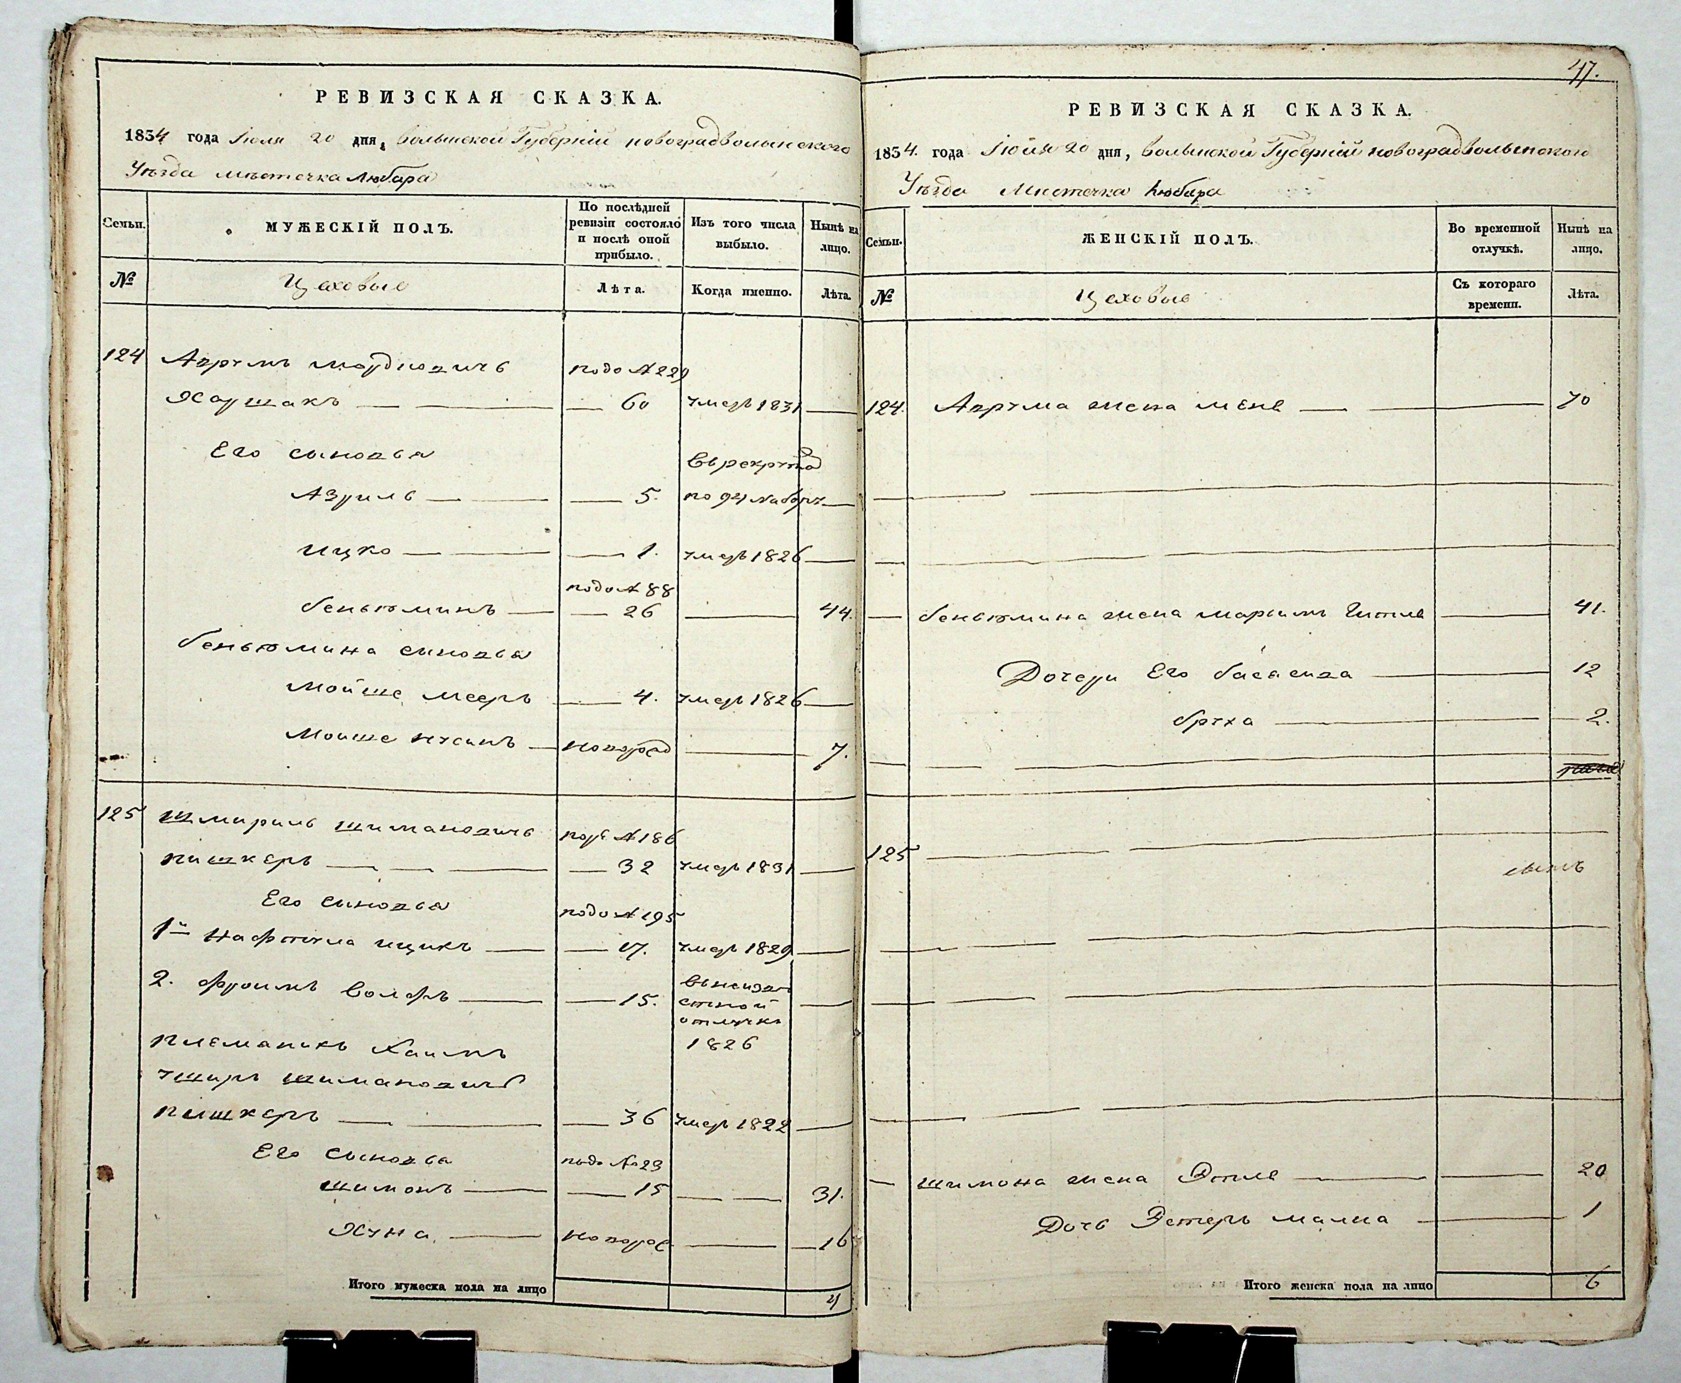 РЕВИЗСКАЯ СКАЗКА.
1854 года Іюля 20 дня, Волынской Губерніи Новоградволынского
Уѣзда мѣстечка Любара
Семьи.
МУЖЕСКІЙ ПОЛЪ.
По послѣдней ревизіи состояло и послѣ оной прибыло.
Изъ того числа выбыло.
Нынѣ на лицо.
№
Цеховые
Лѣта.
Когда именно.
Лѣта.
124 Аврумъ Мордковичъ подъ № 229
60 умеръ 1831
Его сыновья въ рекруты
Азриль 5. по 94 набору
Ицко 1. умеръ 1826
подъ № 88
Беньюминъ 26 44.
Беньюмина сыновья
Мойше Мееръ 4. умеръ 1826
Мойше Нусинъ новорожд 7.
125 Шмариль Шимановичъ подъ № 186
Пишкеръ 32 умеръ 1831
Его сыновья подъ № 195
1й Нафтула Ицикъ 17. умеръ 1829
2. Фроимъ Волфъ 15. въ неизвѣстной отлучкѣ 1826
племаникъ Хаимъ
Ушеръ Шимановичъ
Пишкеръ 36 умеръ 1822
Его сыновья подъ № 23
Шимонъ 15 31.
Хуна новорож 16
Итого мужеска пола на лицо 4
47.
РЕВИЗСКАЯ СКАЗКА.
1854. года Іюля 20 дня, Волынской Губерніи Новоградволынского
Уѣзда Мистечка Любара
Семьи.
ЖЕНСКІЙ ПОЛЪ.
Во временной отлучкѣ.
Нынѣ на лицо.
№
Цеховые
Съ котораго времени.
Лѣта.
124. Аврума жена 70
Беньюмина жена Марьимъ Гитля 41.
Дочери Его Басшева 12
Бруха 2.
125
Шимона жена Этля 20
Дочь Эстеръ Малка 1
Итого женска пола на лицо 6